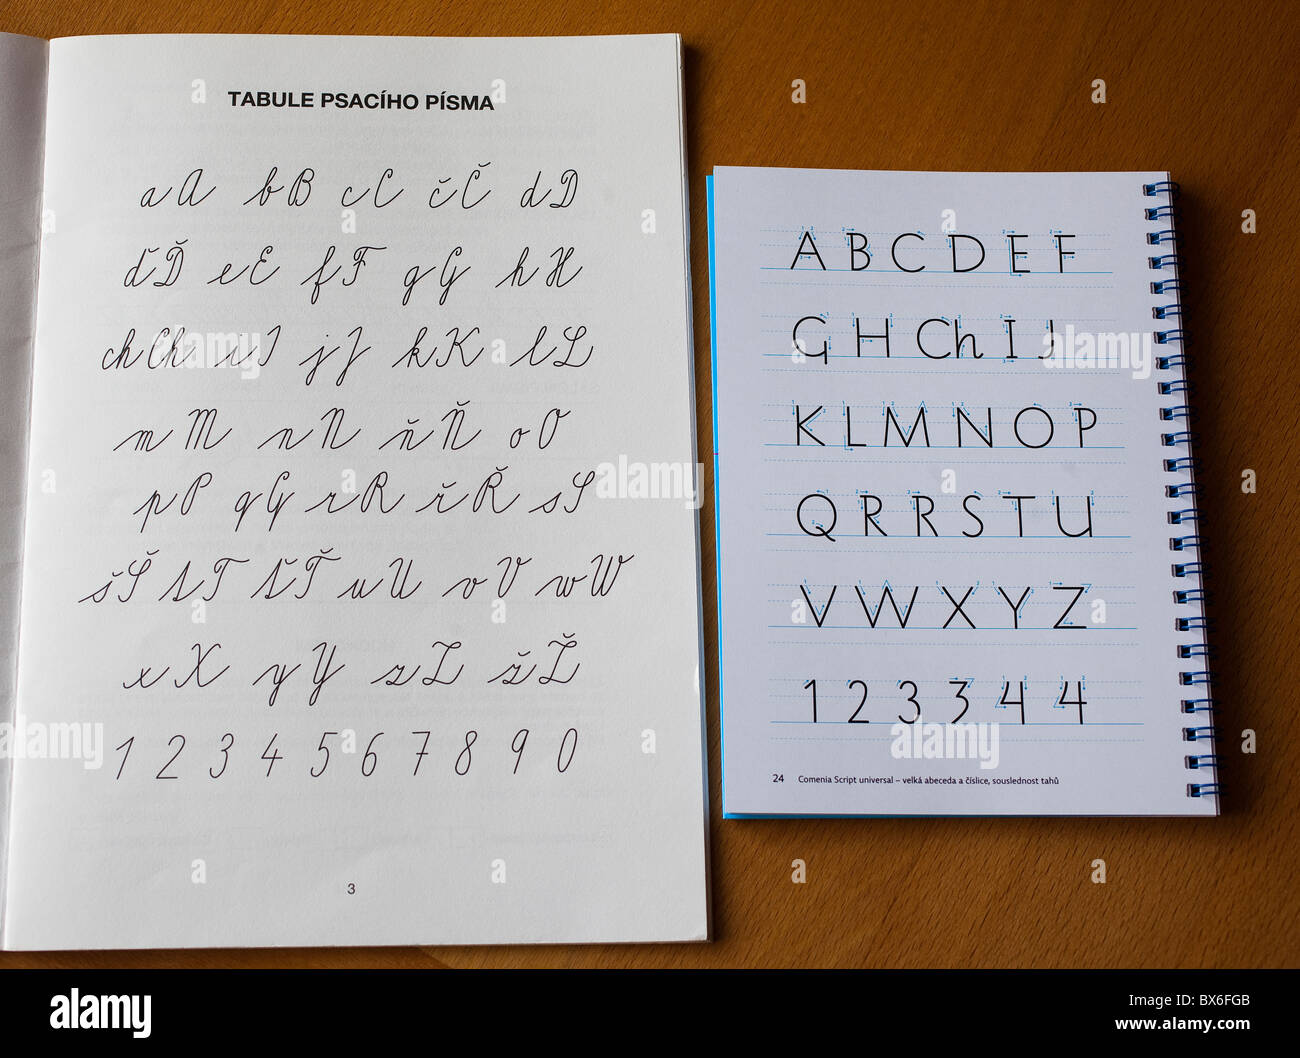 TABULE PSACÍHO PÍSMA
aA bB cC čČ dD
ďĎ eE fF gG hH
chCh iI jJ kK lL
mM nN ňŇ oO
pP qQ rR řŘ sS
šŠ tT ťŤ uU vV wW
xX yY zZ žŽ
1 2 3 4 5 6 7 8 9 0
3
A B C D E F
G H Ch I J
K L M N O P
Q R R S T U
V W X Y Z
1 2 3 3 4 4
24 Comenia Script universal – velká abeceda a číslice, souslednost tahů
alamy
B6FGB
www.alamy.com